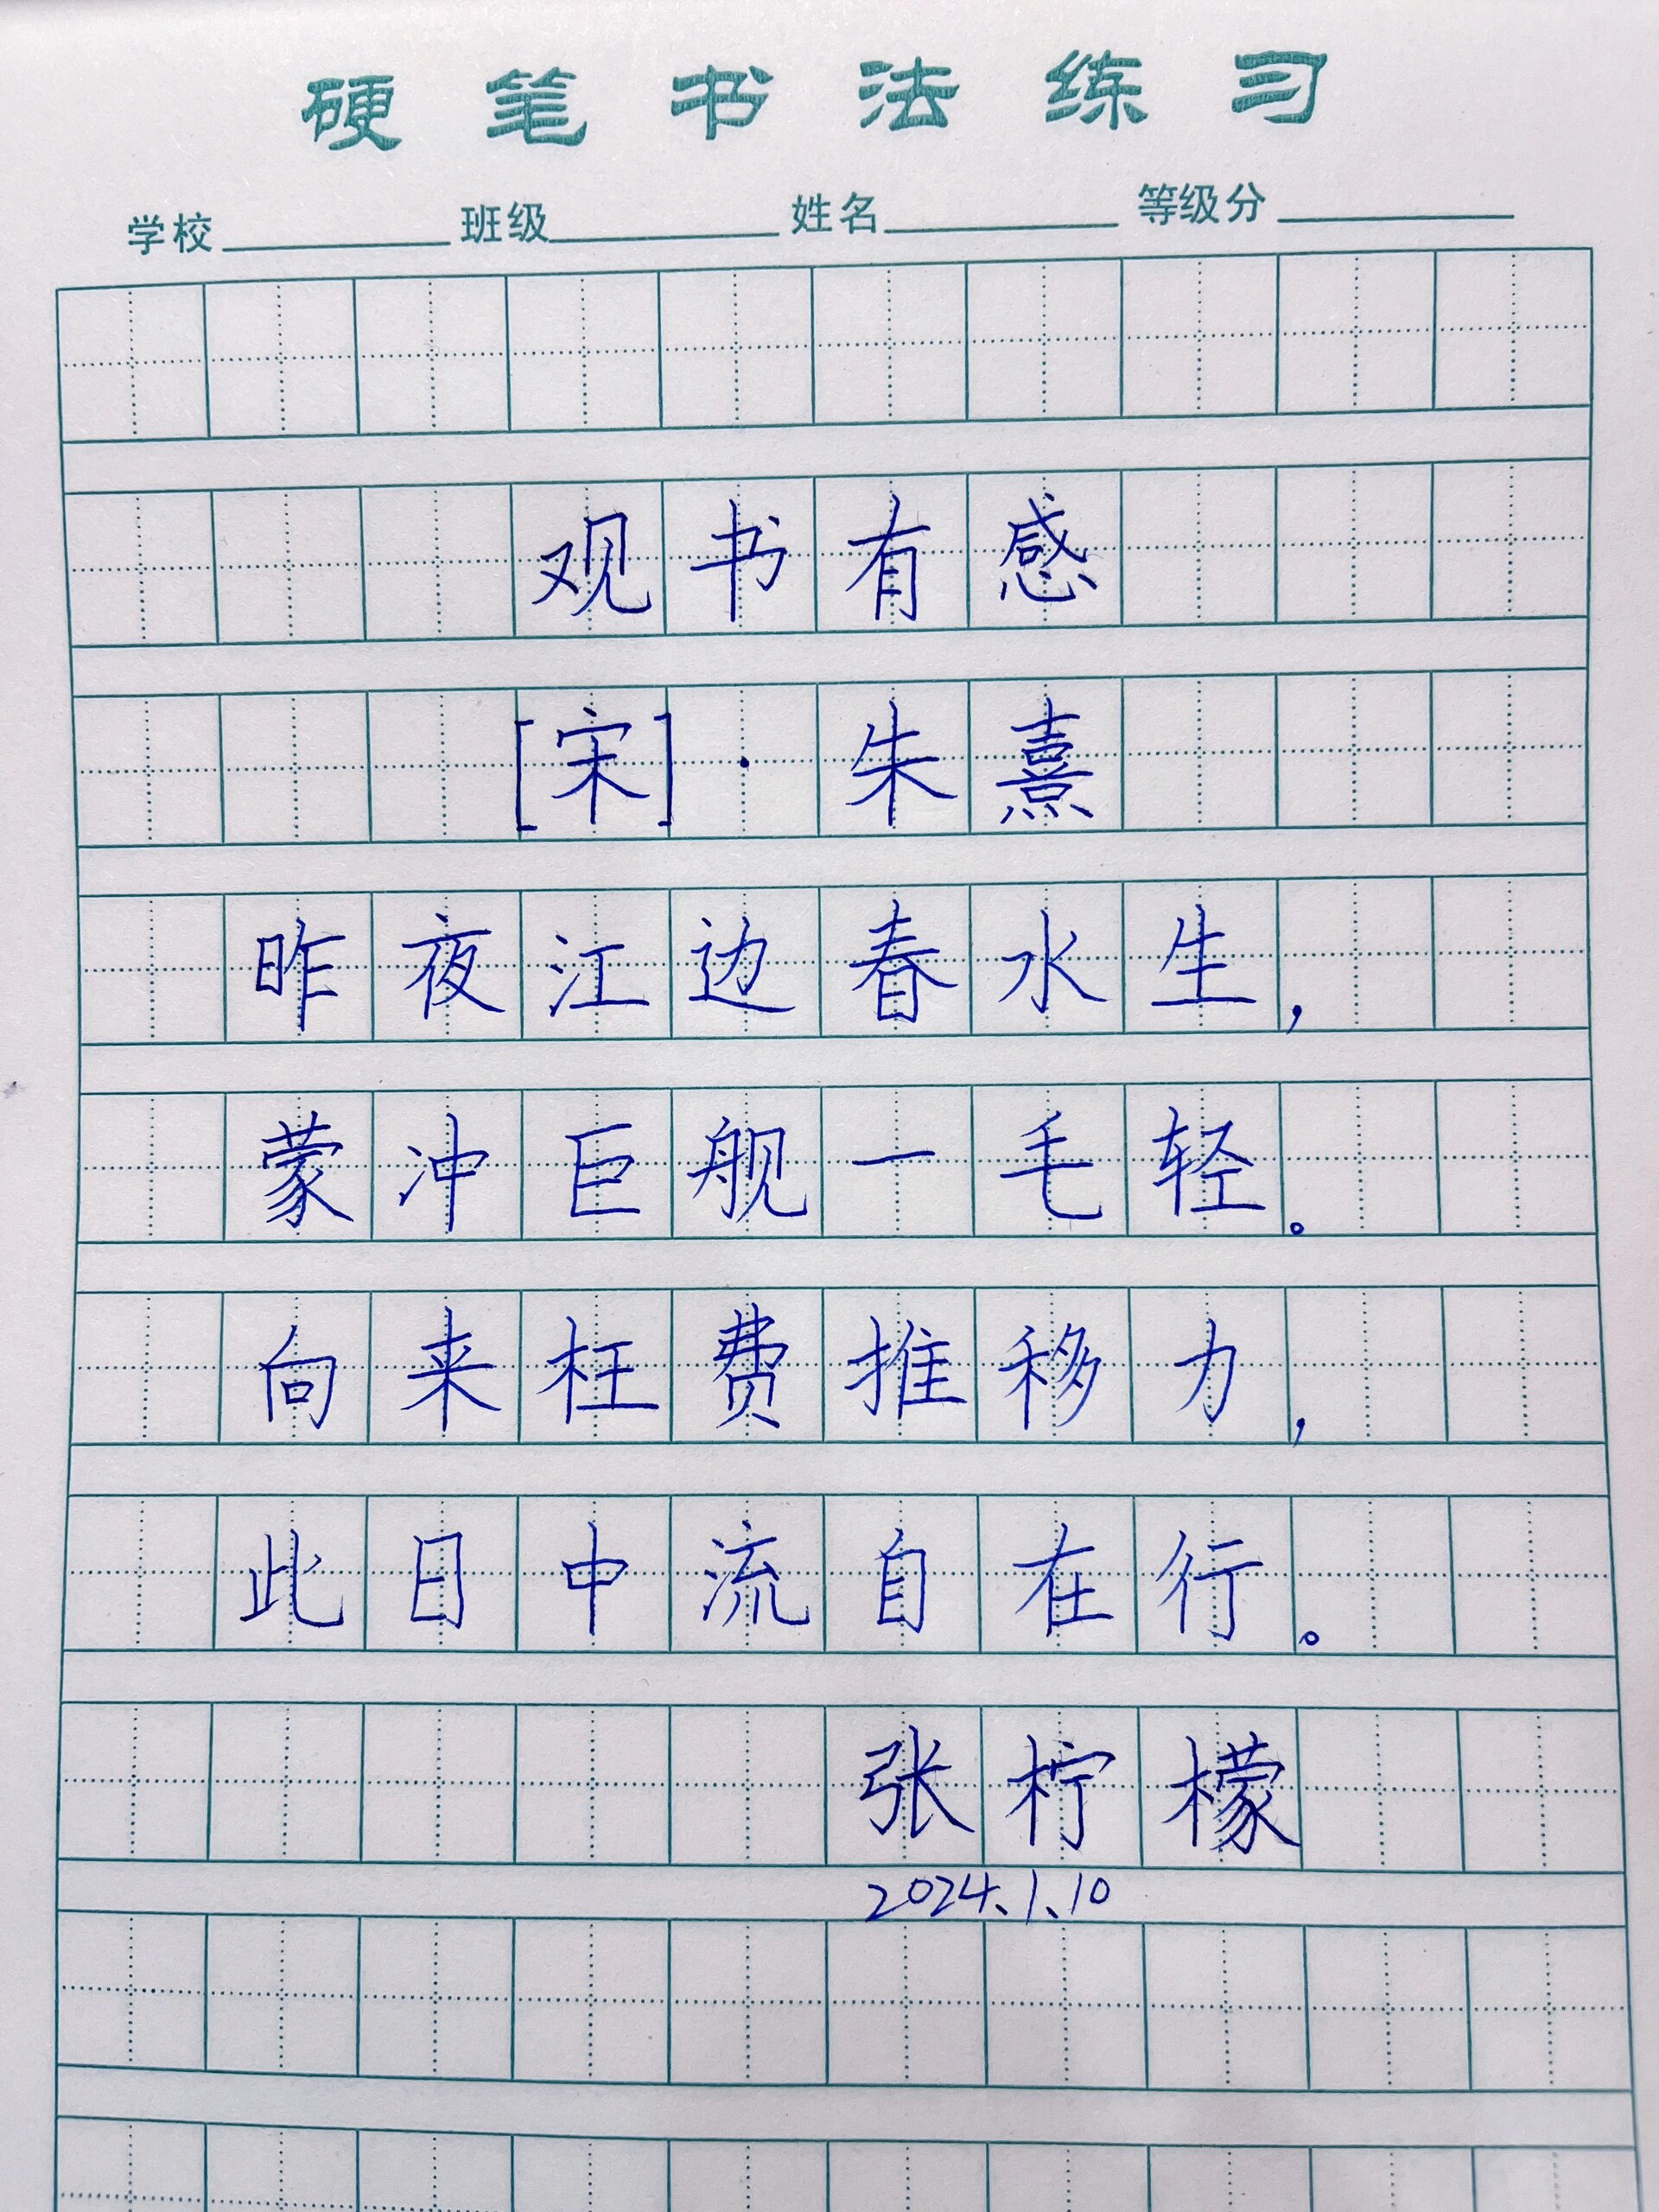 硬笔书法练习
学校 班级 姓名 等级分
观书有感
[宋]·朱熹
昨夜江边春水生，
蒙冲巨舰一毛轻。
向来枉费推移力，
此日中流自在行。
张柠檬
2024.1.10